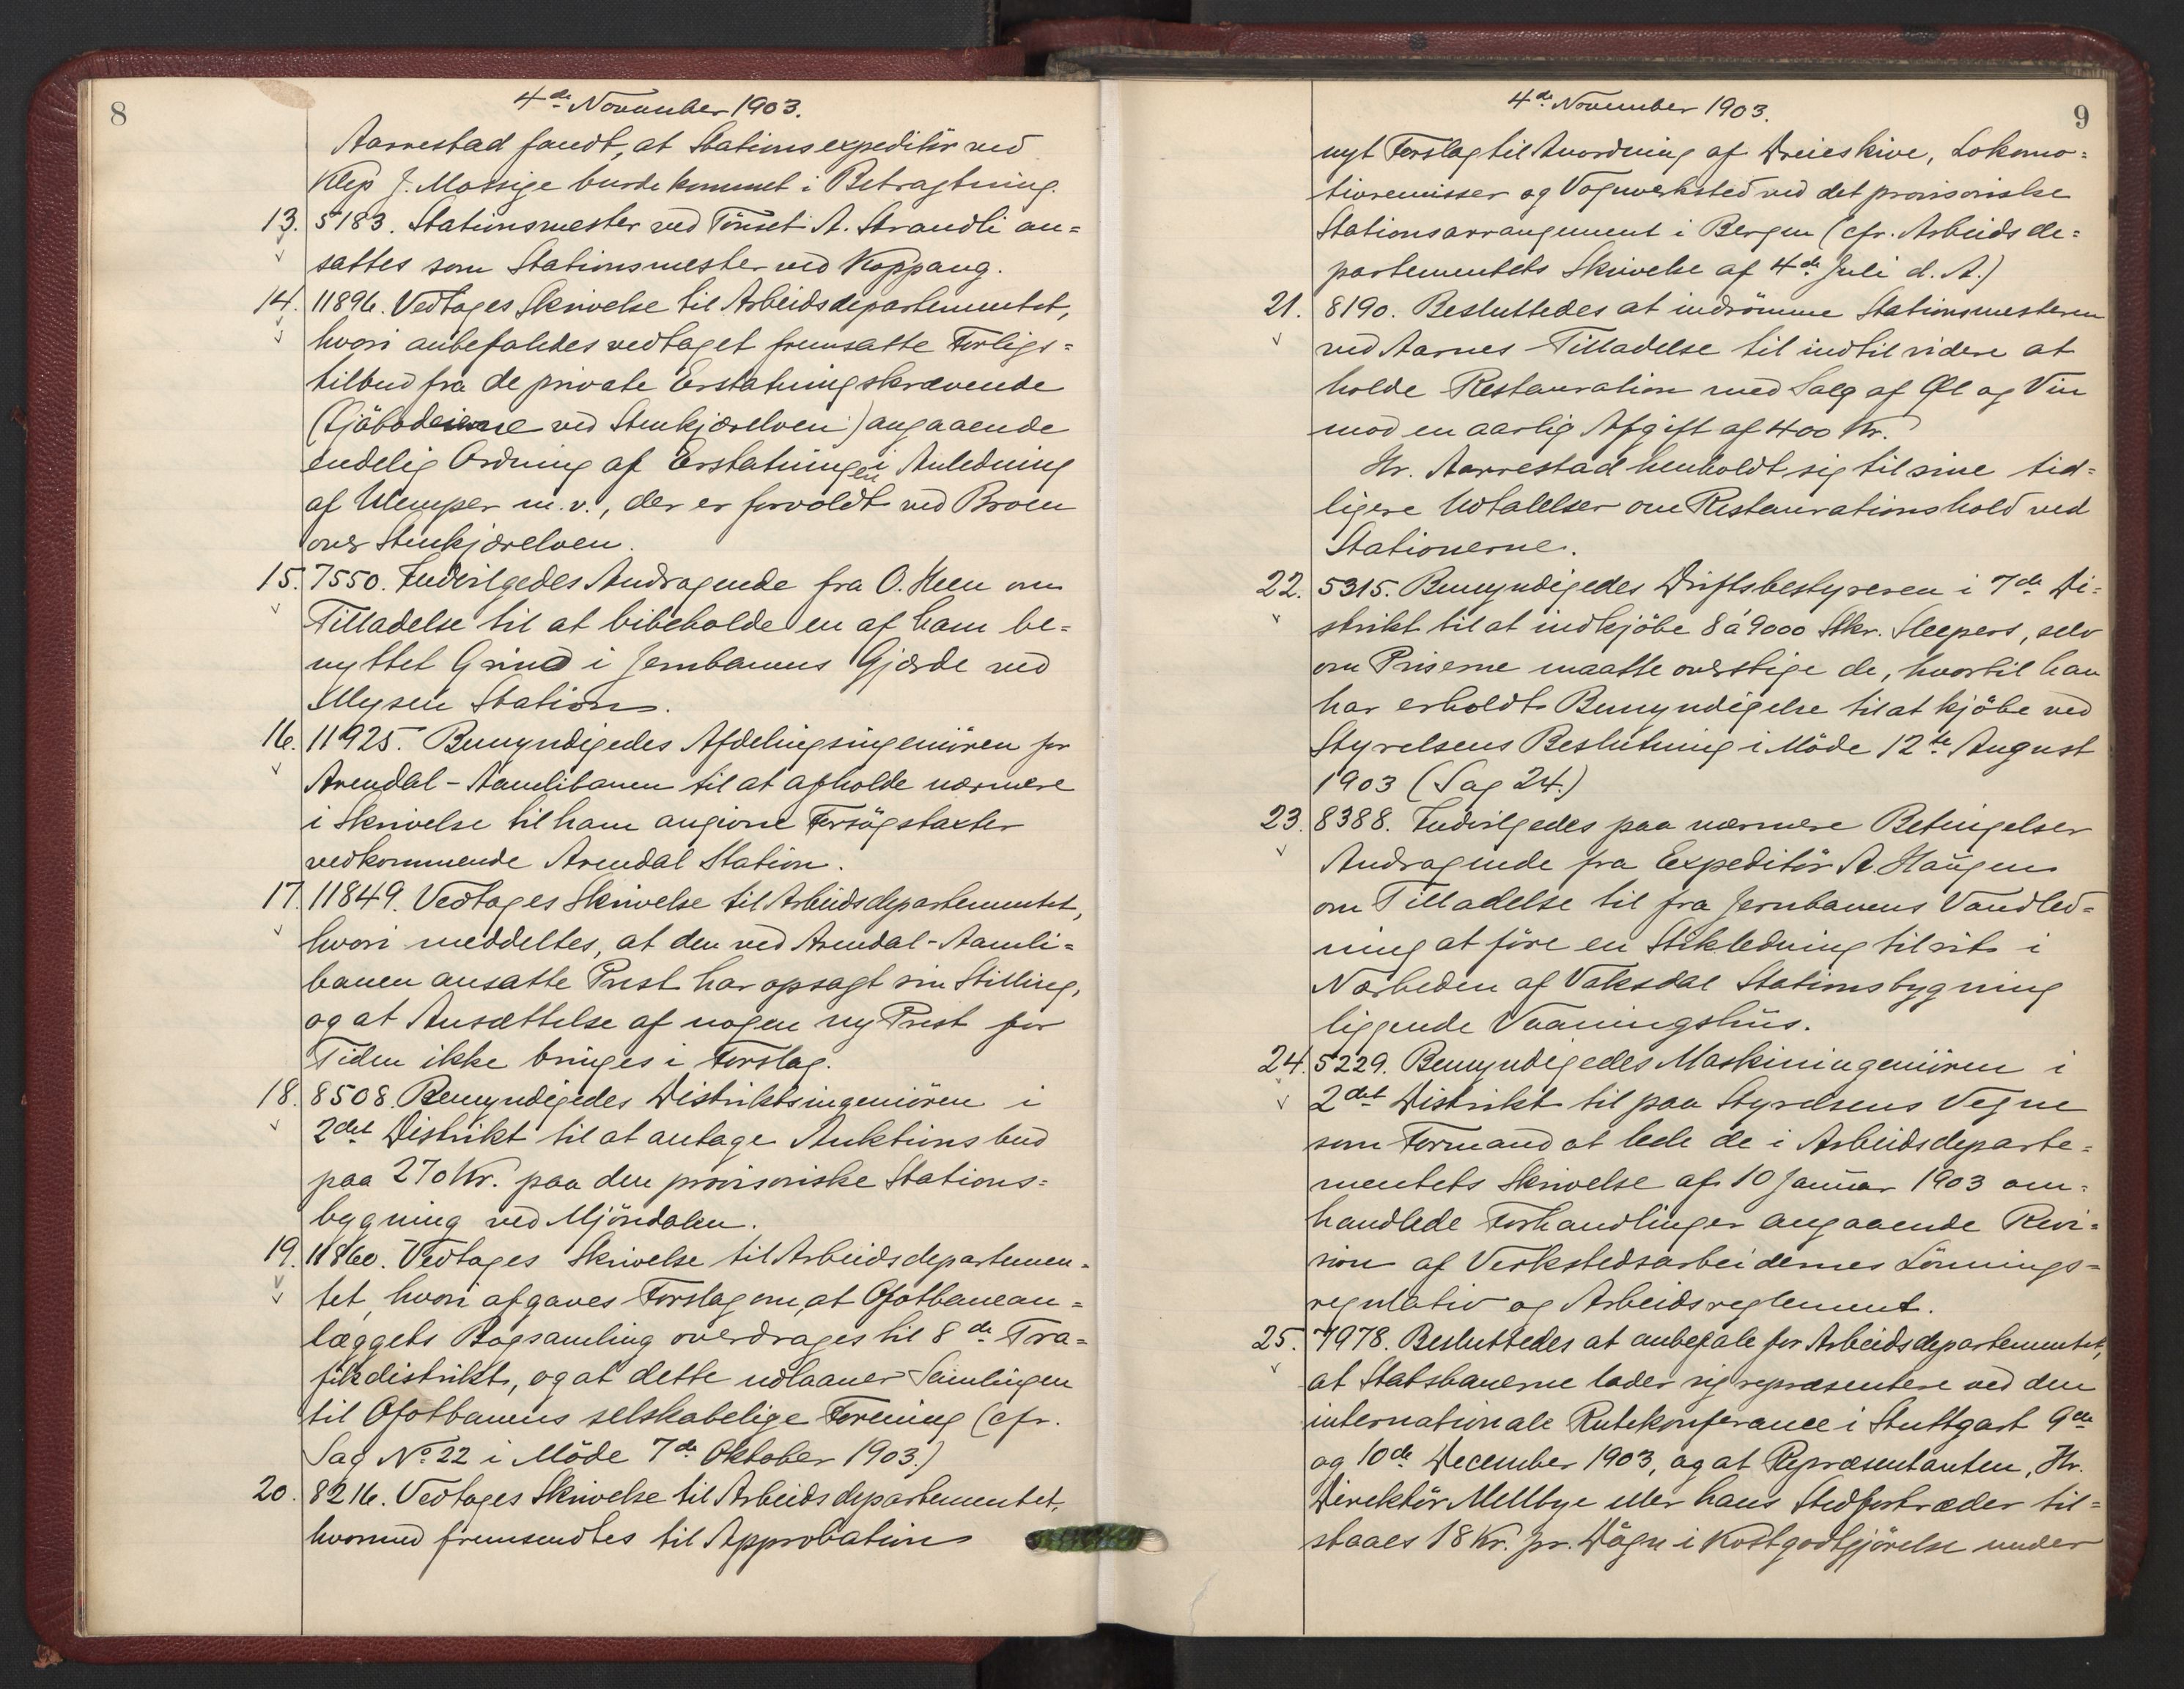 8
4de November 1903.
Aarrestad fandt, at Stationsexpeditør ved
Klep J. Mossige burde kommet i Betragtning.
13. 5183. Stationsmester ved Tönset A. Strandli an=
sattes som Stationsmester ved Koppang.
14. 11896. Vedtages Skrivelse til Arbeidsdepartementet,
hvori anbefaledes vedtaget fremsatte Forligs=
tilbud fra de private Erstatningskrævende
(Sjöbodeierne ved Stenkjærelven) angaaende
endelig Ordning af Erstatningen i Anledning
af Ulemper m.v., der er forvoldt ved Broen
over Stenkjærelven.
15. 7550. Indvilgedes Andragende fra O. Heen om
Tilladelse til at bibeholde en af ham be=
nyttet Grind i Jernbanens Gjærde ved
Mysen Station.
16. 11925. Bemyndigedes Afdelingsingeniören for
Arendal-Aamlibanen til at afholde nærmere
i Skrivelse til ham angivne Forsögstaxter
vedkommende Arendal Station.
17. 11849. Vedtages Skrivelse til Arbeidsdepartementet,
hvori meddeltes, at den ved Arendal-Aamli=
banen ansatte Prest har opsagt sin Stilling,
og at Ansættelse af nogen ny Prest for
Tiden ikke bringes i Forslag.
18. 8508. Bemyndigedes Distriktsingeniören i
2det Distrikt til at antage Auktionsbud
paa 270 Kr. paa den provisoriske Stations=
bygning ved Mjöndalen.
19. 11860. Vedtages Skrivelse til Arbeidsdepartemen=
tet, hvori afgaves Forslag om, at Ofotbanean=
læggets Bogsamling overdrages til 8de Tra=
fikdistrikt, og at dette udlaaner Samlingen
til Ofotbanens selskabelige Forening (cfr.
Sag No 22 i Möde 7de Oktober 1903.)
20. 8216. Vedtages Skrivelse til Arbeidsdepartementet,
hvormed fremsendtes til Approbation
9
4de November 1903.
nyt Forslag til Anordning af Dreieskive, Lokomo=
tivremisser og Vognverksted ved det provisoriske
Stationsarrangement i Bergen (cfr. Arbeidsde=
partementets Skrivelse af 4de Juli d. A.)
21. 8190. Besluttedes at indrömme Stationsmesteren
ved Aarnes Tilladelse til indtil videre at
holde Restauration med Salg af Øl og Vin
mod en aarlig Afgift af 400 Kr.
Hr. Aarrestad henholdt sig til sine tid=
ligere Udtalelser om Restaurationshold ved
Stationerne.
22. 5315. Bemyndigedes Driftsbestyreren i 7de Di=
strikt til at indkjöbe 8 à 9000 Stkr. Sleepers, selv
om Priserne maatte overstige de, hvortil han
har erholdt Bemyndigelse til at kjöbe ved
Styrelsens Beslutning i Möde 12te August
1903 (Sag 24.)
23. 8388. Indvilgedes paa nærmere Betingelser
Andragende fra Expeditör A. Haugen
om Tilladelse til fra Jernbanens Vandled=
ning at före en Stikledning til sit i
Nærheden af Vaksdal Stationsbygning
liggende Vaaningshus.
24. 5229. Bemyndigedes Maskiningeniören i
2det Distrikt til paa Styrelsens Vegne
som Formand at lede de i Arbeidsdeparte=
mentets Skrivelse af 10 Januar 1903 om=
handlede Forhandlinger angaaende Revi=
sion af Verkstedsarbeidernes Lönnings=
regulativ og Arbeidsreglement.
25. 7978. Besluttedes at anbefale for Arbeidsdepartementet,
at Statsbanerne lader sig repræsentere ved den
internationale Rutekonferance i Stuttgart 9de
og 10de December 1903, og at Repræsentanten, Hr.
Direktör Mellbye eller hans Stedfortræder til=
staaes 18 Kr. pr. Dögn i Kostgodtgjörelse under